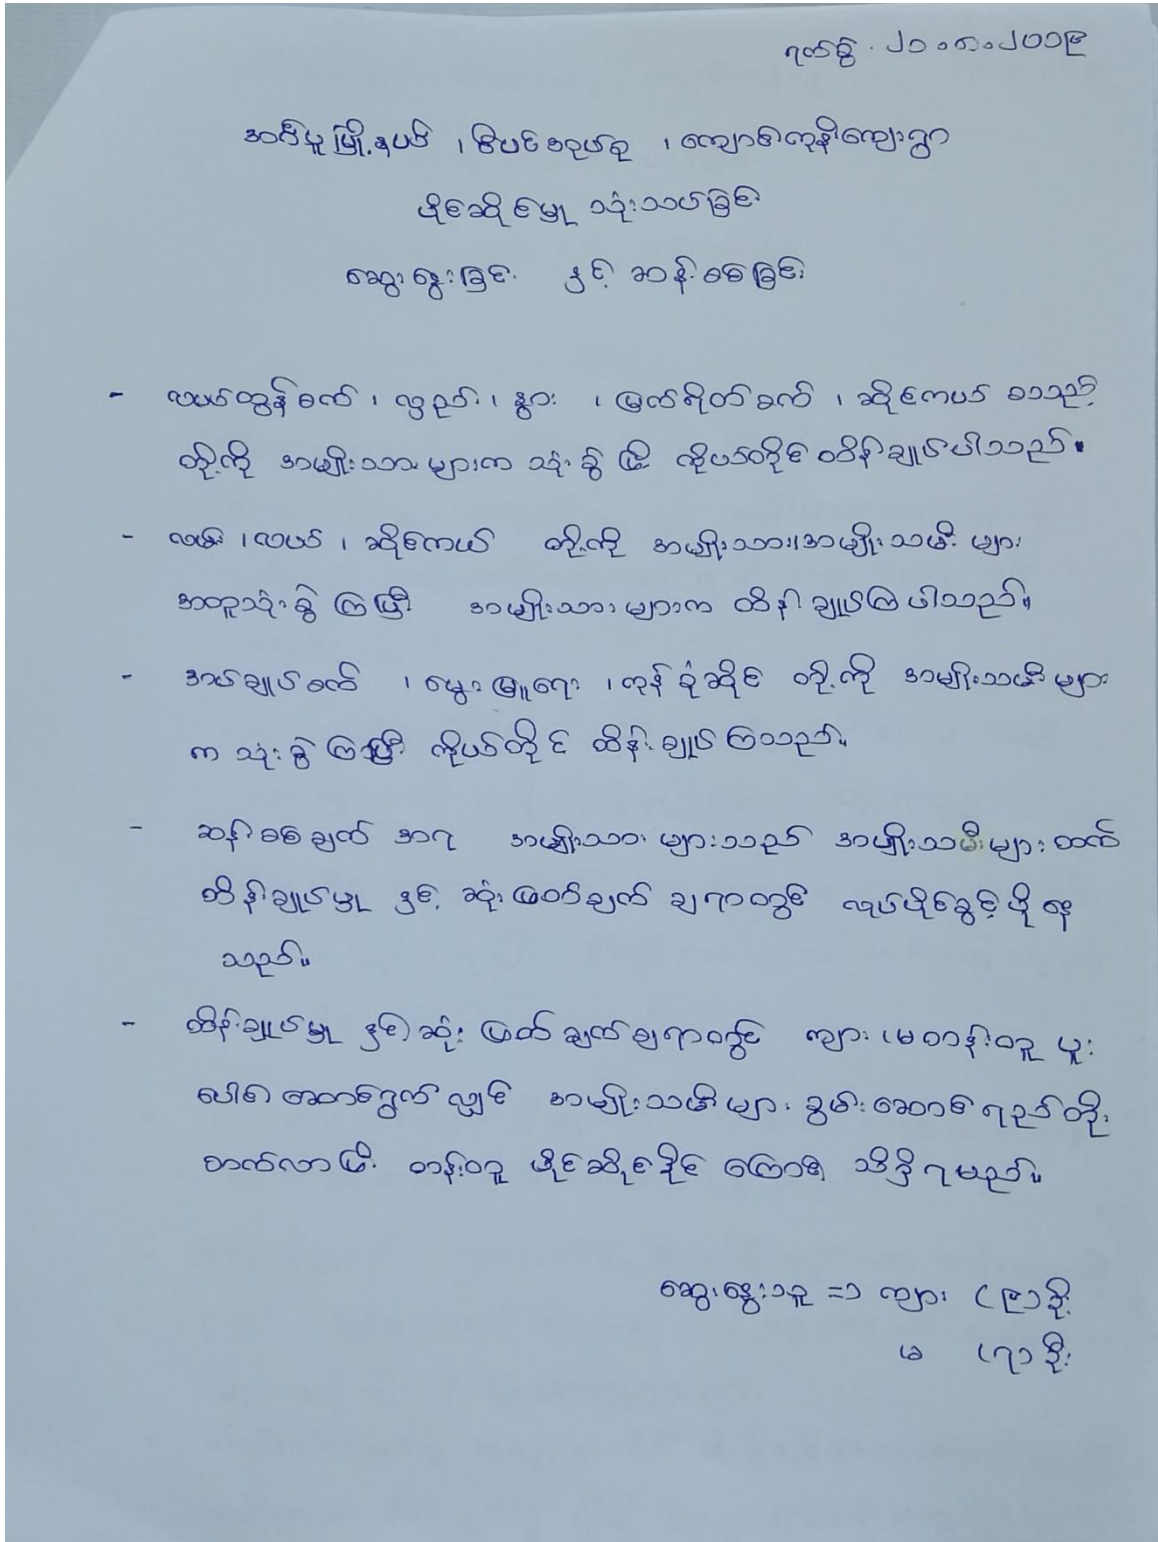 ရက်စွဲ . ၂၁.၈.၂၀၁၉
အင်္ပူမြို့နယ် ၊ စီပင်အုပ်စု ၊ ကျောက်ကုန်းကျေးရွာ
ပိုင်ဆိုင်မှု သုံးသပ်ခြင်း
ဆွေးနွေးခြင်း နှင့် ဆန်းစစ်ခြင်း
- လယ်ထွန်စက် ၊ လှည်း ၊ နွား ၊ မြက်ရိတ်စက် ၊ ဆိုင်ကယ် စသည့်
တို့ကို အမျိုးသားများက သုံးစွဲပြီး ကိုယ်တိုင် ထိန်းချုပ်ပါသည်။
- လမ်း ၊ လယ် ၊ ဆိုင်ကယ် တို့ကို အမျိုးသား၊အမျိုးသမီးများ
အတူသုံးစွဲကြပြီး အမျိုးသားများက ထိန်းချုပ်ကြပါသည်။
- အပ်ချုပ်စက် ၊ မွေးမြူရေး ၊ ကုန်စုံဆိုင် တို့ကို အမျိုးသမီးများ
က သုံးစွဲကြပြီး ကိုယ်တိုင် ထိန်းချုပ်ကြသည်။
- ဆန်းစစ်ချက် အရ အမျိုးသားများသည် အမျိုးသမီးများထက်
ထိန်းချုပ်မှု နှင့် ဆုံးဖြတ်ချက် ချရာတွင် လုပ်ပိုင်ခွင့် ပိုနေ
သည်။
- ထိန်းချုပ်မှု နှင့် ဆုံးဖြတ်ချက်ချရာတွင် ကျား ၊မ တန်းတူ ပူး
ပေါင်းဆောင်ရွက်လျှင် အမျိုးသမီးများ စွမ်းဆောင်ရည်တိုး
တက်လာပြီး တန်းတူ ပိုင်ဆိုင်နိုင်ကြောင်း သိရှိရမည်။
ဆွေးနွေးသူ => ကျား (၉)ဦး
မ (၇)ဦး